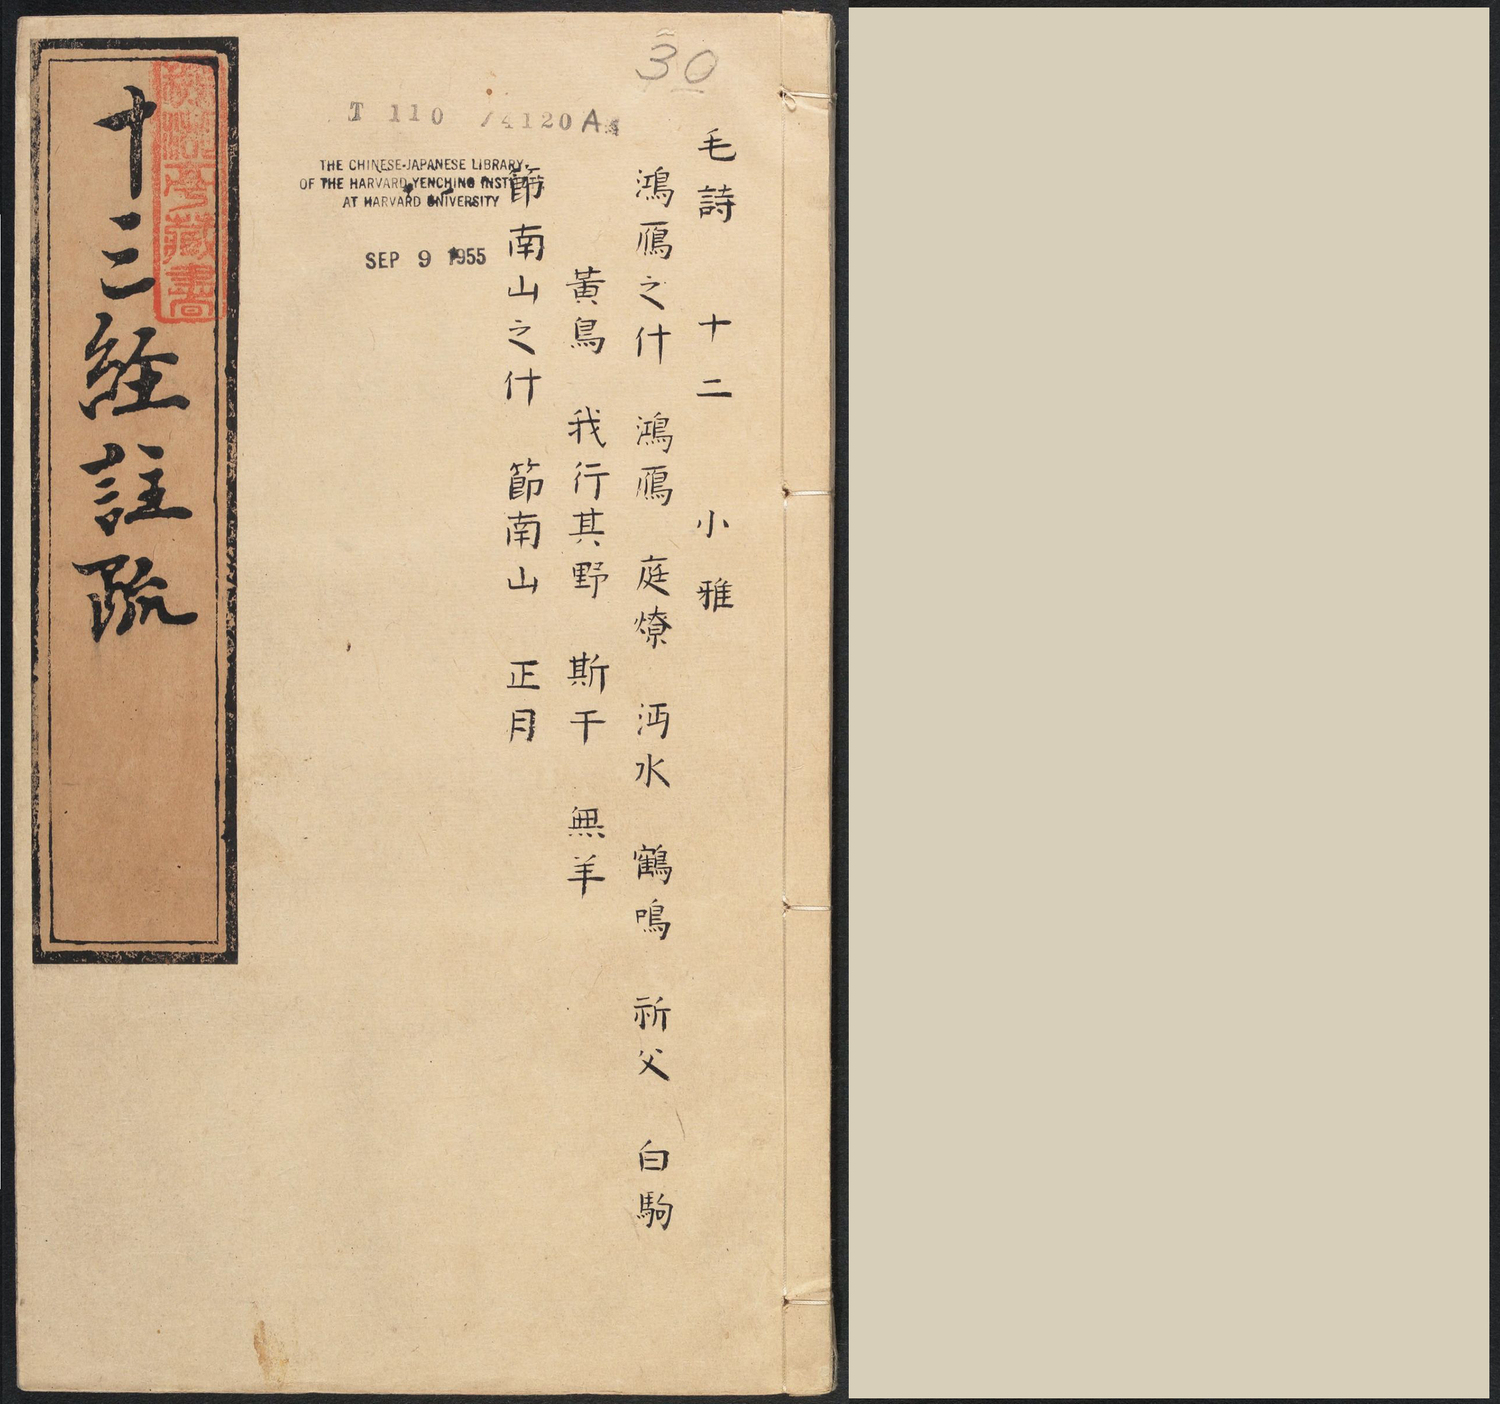 30
T 110 /4120 A
THE CHINESE-JAPANESE LIBRARY
OF THE HARVARD-YENCHING INSTITUTE
AT HARVARD UNIVERSITY
SEP 9 1955
毛詩 十二 小雅
鴻鴈之什 鴻鴈 庭燎 沔水 鶴鳴 祈父 白駒
黃鳥 我行其野 斯干 無羊
節南山之什 節南山 正月
十三經註疏
藏書